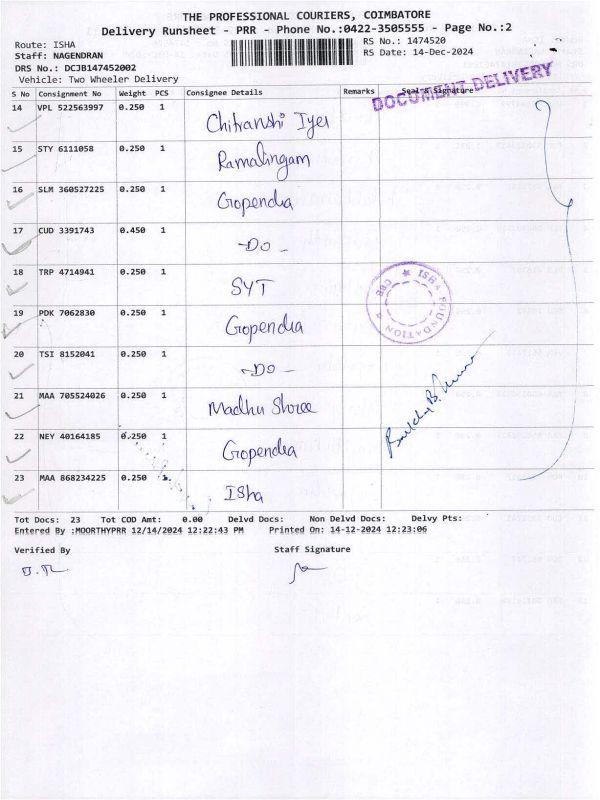 THE PROFESSIONAL COURIERS, COIMBATORE
Delivery Runsheet - PRR - Phone No.:0422-3505555 - Page No.:2
Route: ISHA
RS No.: 1474520
Staff: NAGENDRAN
RS Date: 14-Dec-2024
DRS No.: DCJB147452002
Vehicle: Two Wheeler Delivery
DOCUMENT DELIVERY
S No Consignment No Weight PCS Consignee Details Remarks Seal & Signature
14 VPL 522563997 0.250 1 Chitranshi Iyer
15 STY 6111058 0.250 1 Ramalingam
16 SLM 360527225 0.250 1 Gopendra
17 CUD 3391743 0.450 1 -Do-
18 TRP 4714941 0.250 1 SYT
ISHA FOUNDATION ★ CBE ★
19 PDK 7062830 0.250 1 Gopendra
20 TSI 8152041 0.250 1 -Do-
21 MAA 705524026 0.250 1 Madhu Shree
22 NEY 40164185 0.250 1 Gopendra
23 MAA 868234225 0.250 1 Isha
Tot Docs: 23 Tot COD Amt: 0.00 Delvd Docs: Non Delvd Docs: Delvy Pts:
Entered By :MOORTHYPRR 12/14/2024 12:22:43 PM Printed On: 14-12-2024 12:23:06
Verified By Staff Signature